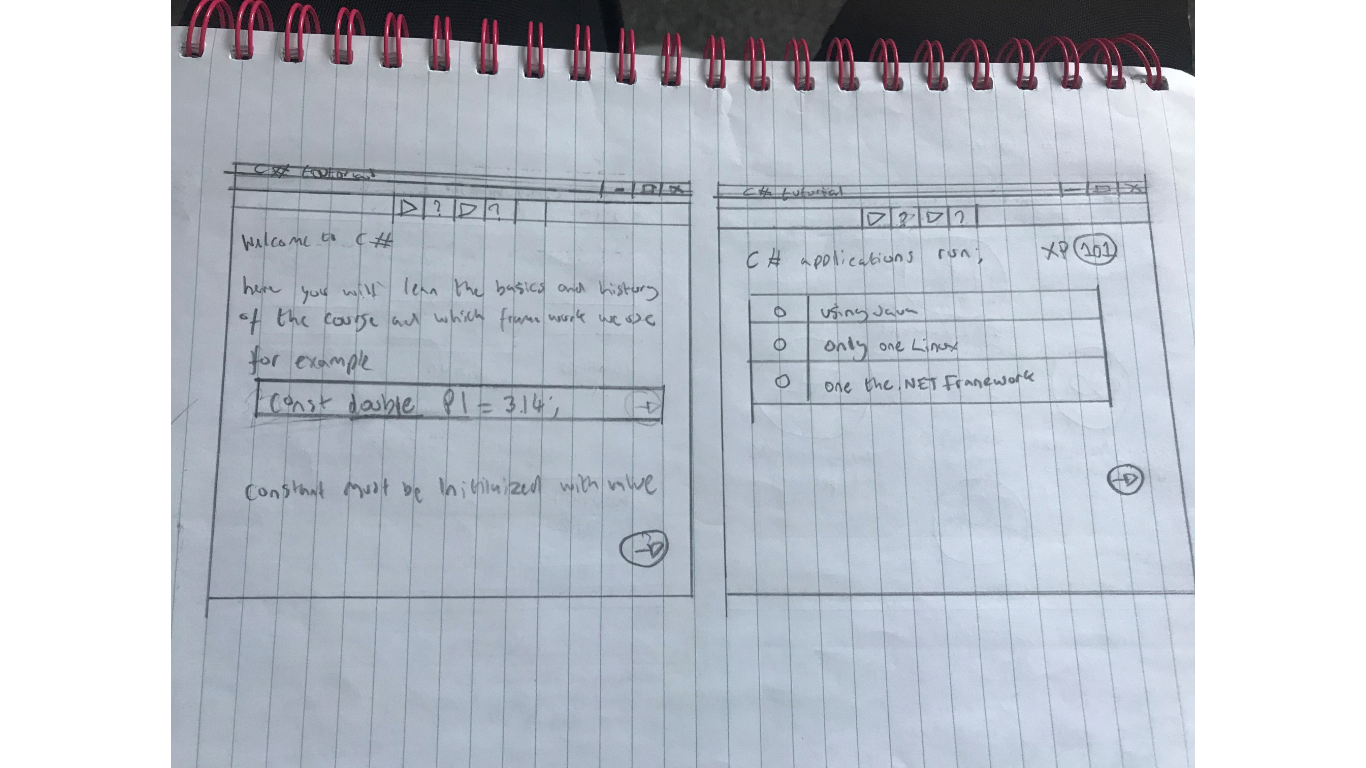 C# tutorial
? ?
Welcome to C#
here you will lean the basics and history
of the course and which frame work we use
for example
Const double PI = 3.14;
Constant must be initilaized with value
C# tutorial
? ?
C# applications run;
XP 101
using Java
only one Linux
one the .NET Framework